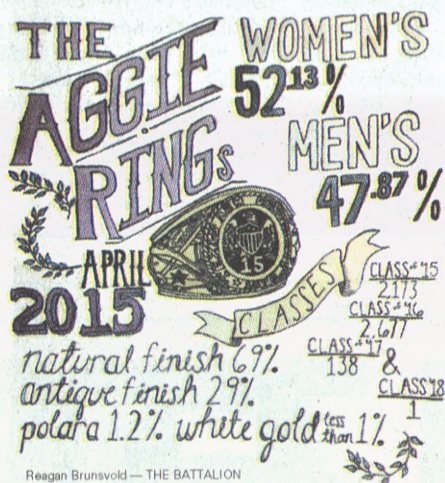 THE
AGGIE
RINGS
WOMEN'S
52.13%
MEN'S
47.87%
APRIL
2015
15
CLASSES
CLASS OF '15
2,173
CLASS OF '16
2,677
CLASS OF '17
138 &
CLASS '18
1
natural finish 69%
antique finish 29%
polara 1.2% white gold less than 1%
Reagan Brunsvold — THE BATTALION